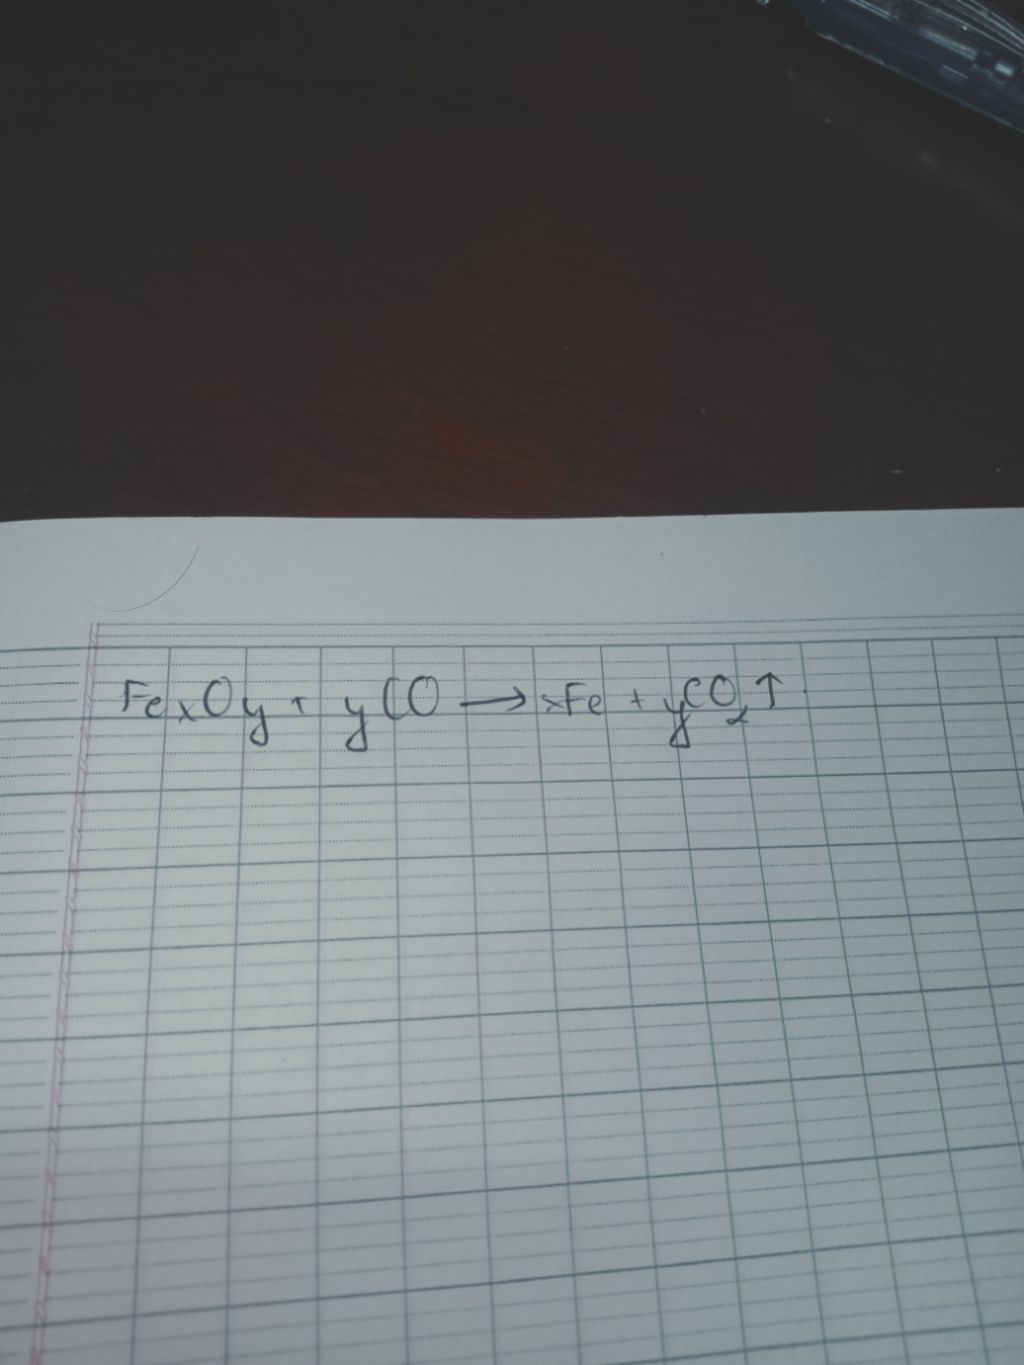 FexOy + yCO → xFe + yCO2↑